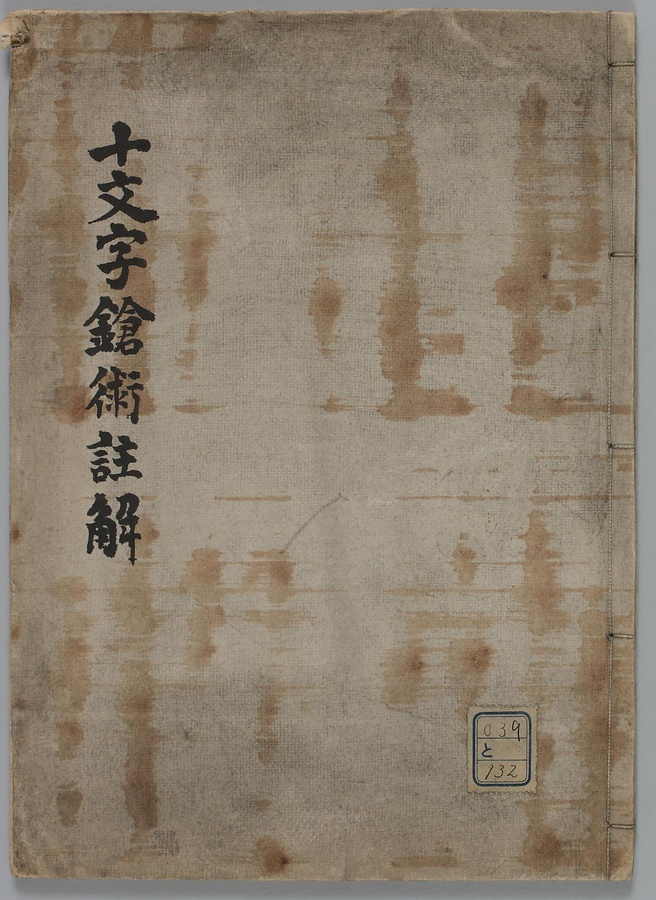 十文字鎗術註解
039
と
132